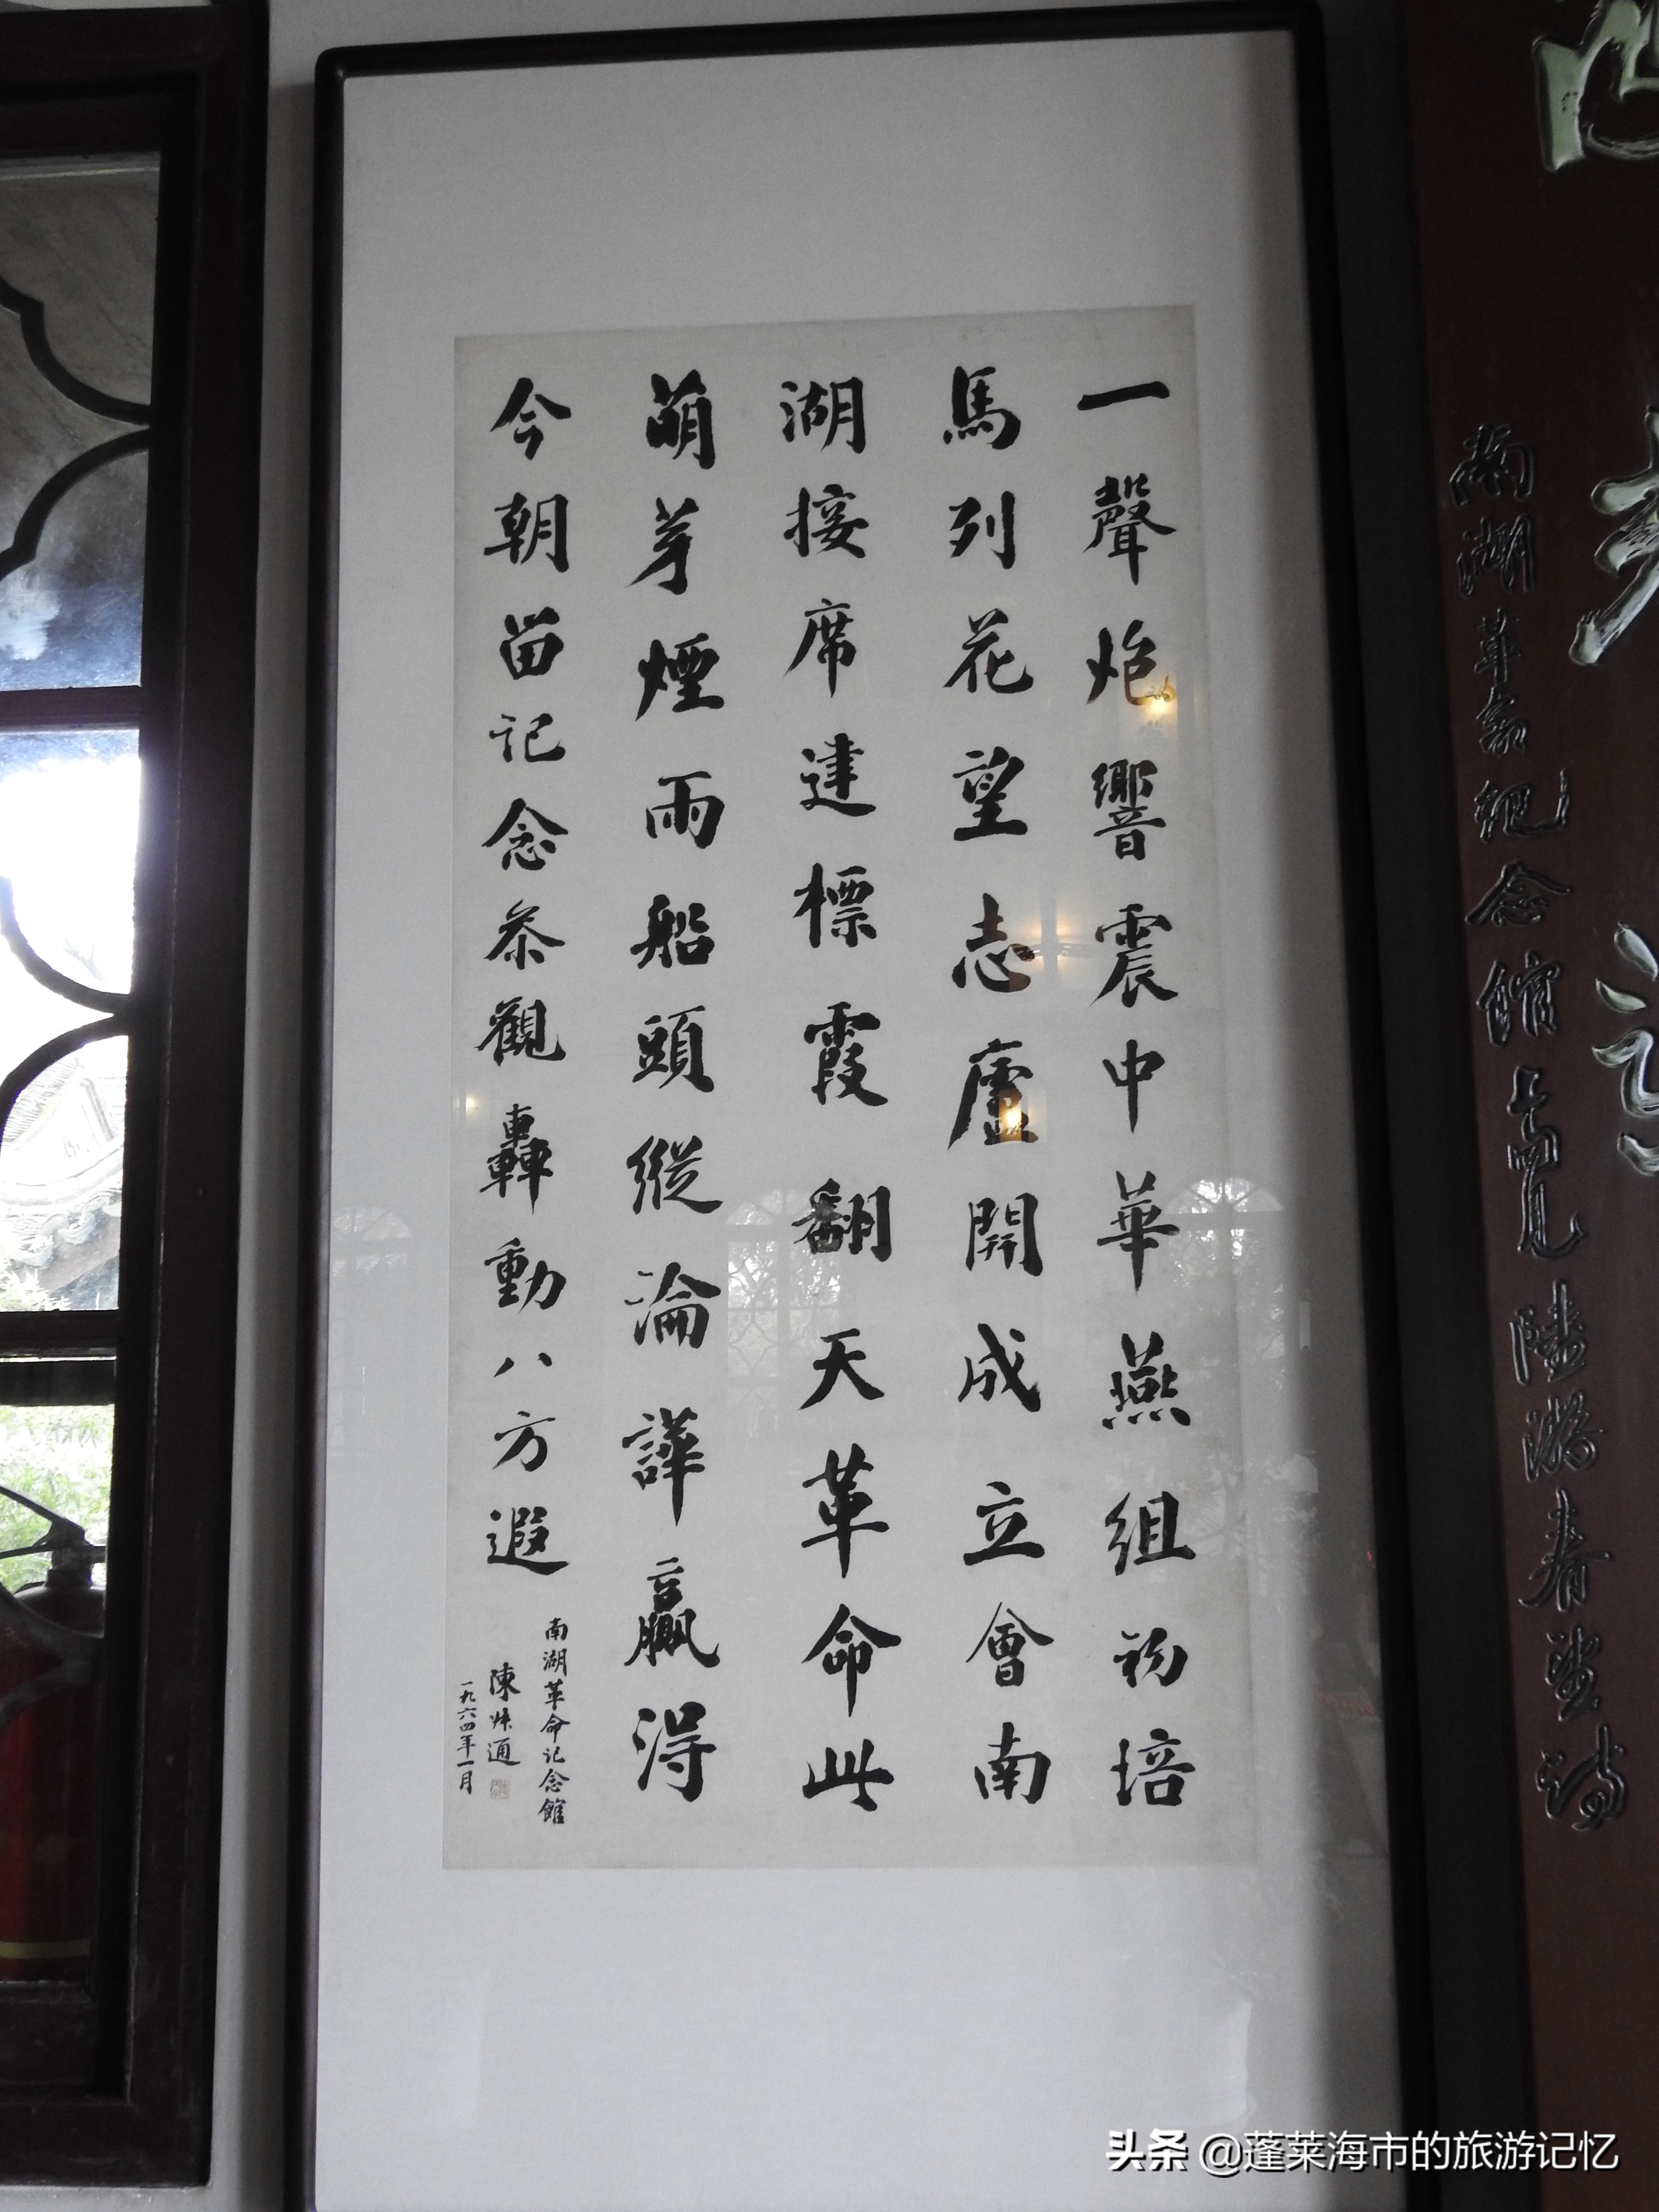 一聲炮響震中華燕組初培
馬列花望志廬開成立會南
湖接席建標霞翻天革命此
萌芽煙雨船頭縱淪譁贏得
今朝留记念叅觀轟動八方遐
南湖革命记念館
陳叔通
一九六四年一月
南湖革命紀念館
頭条 @蓬莱海市的旅游记忆